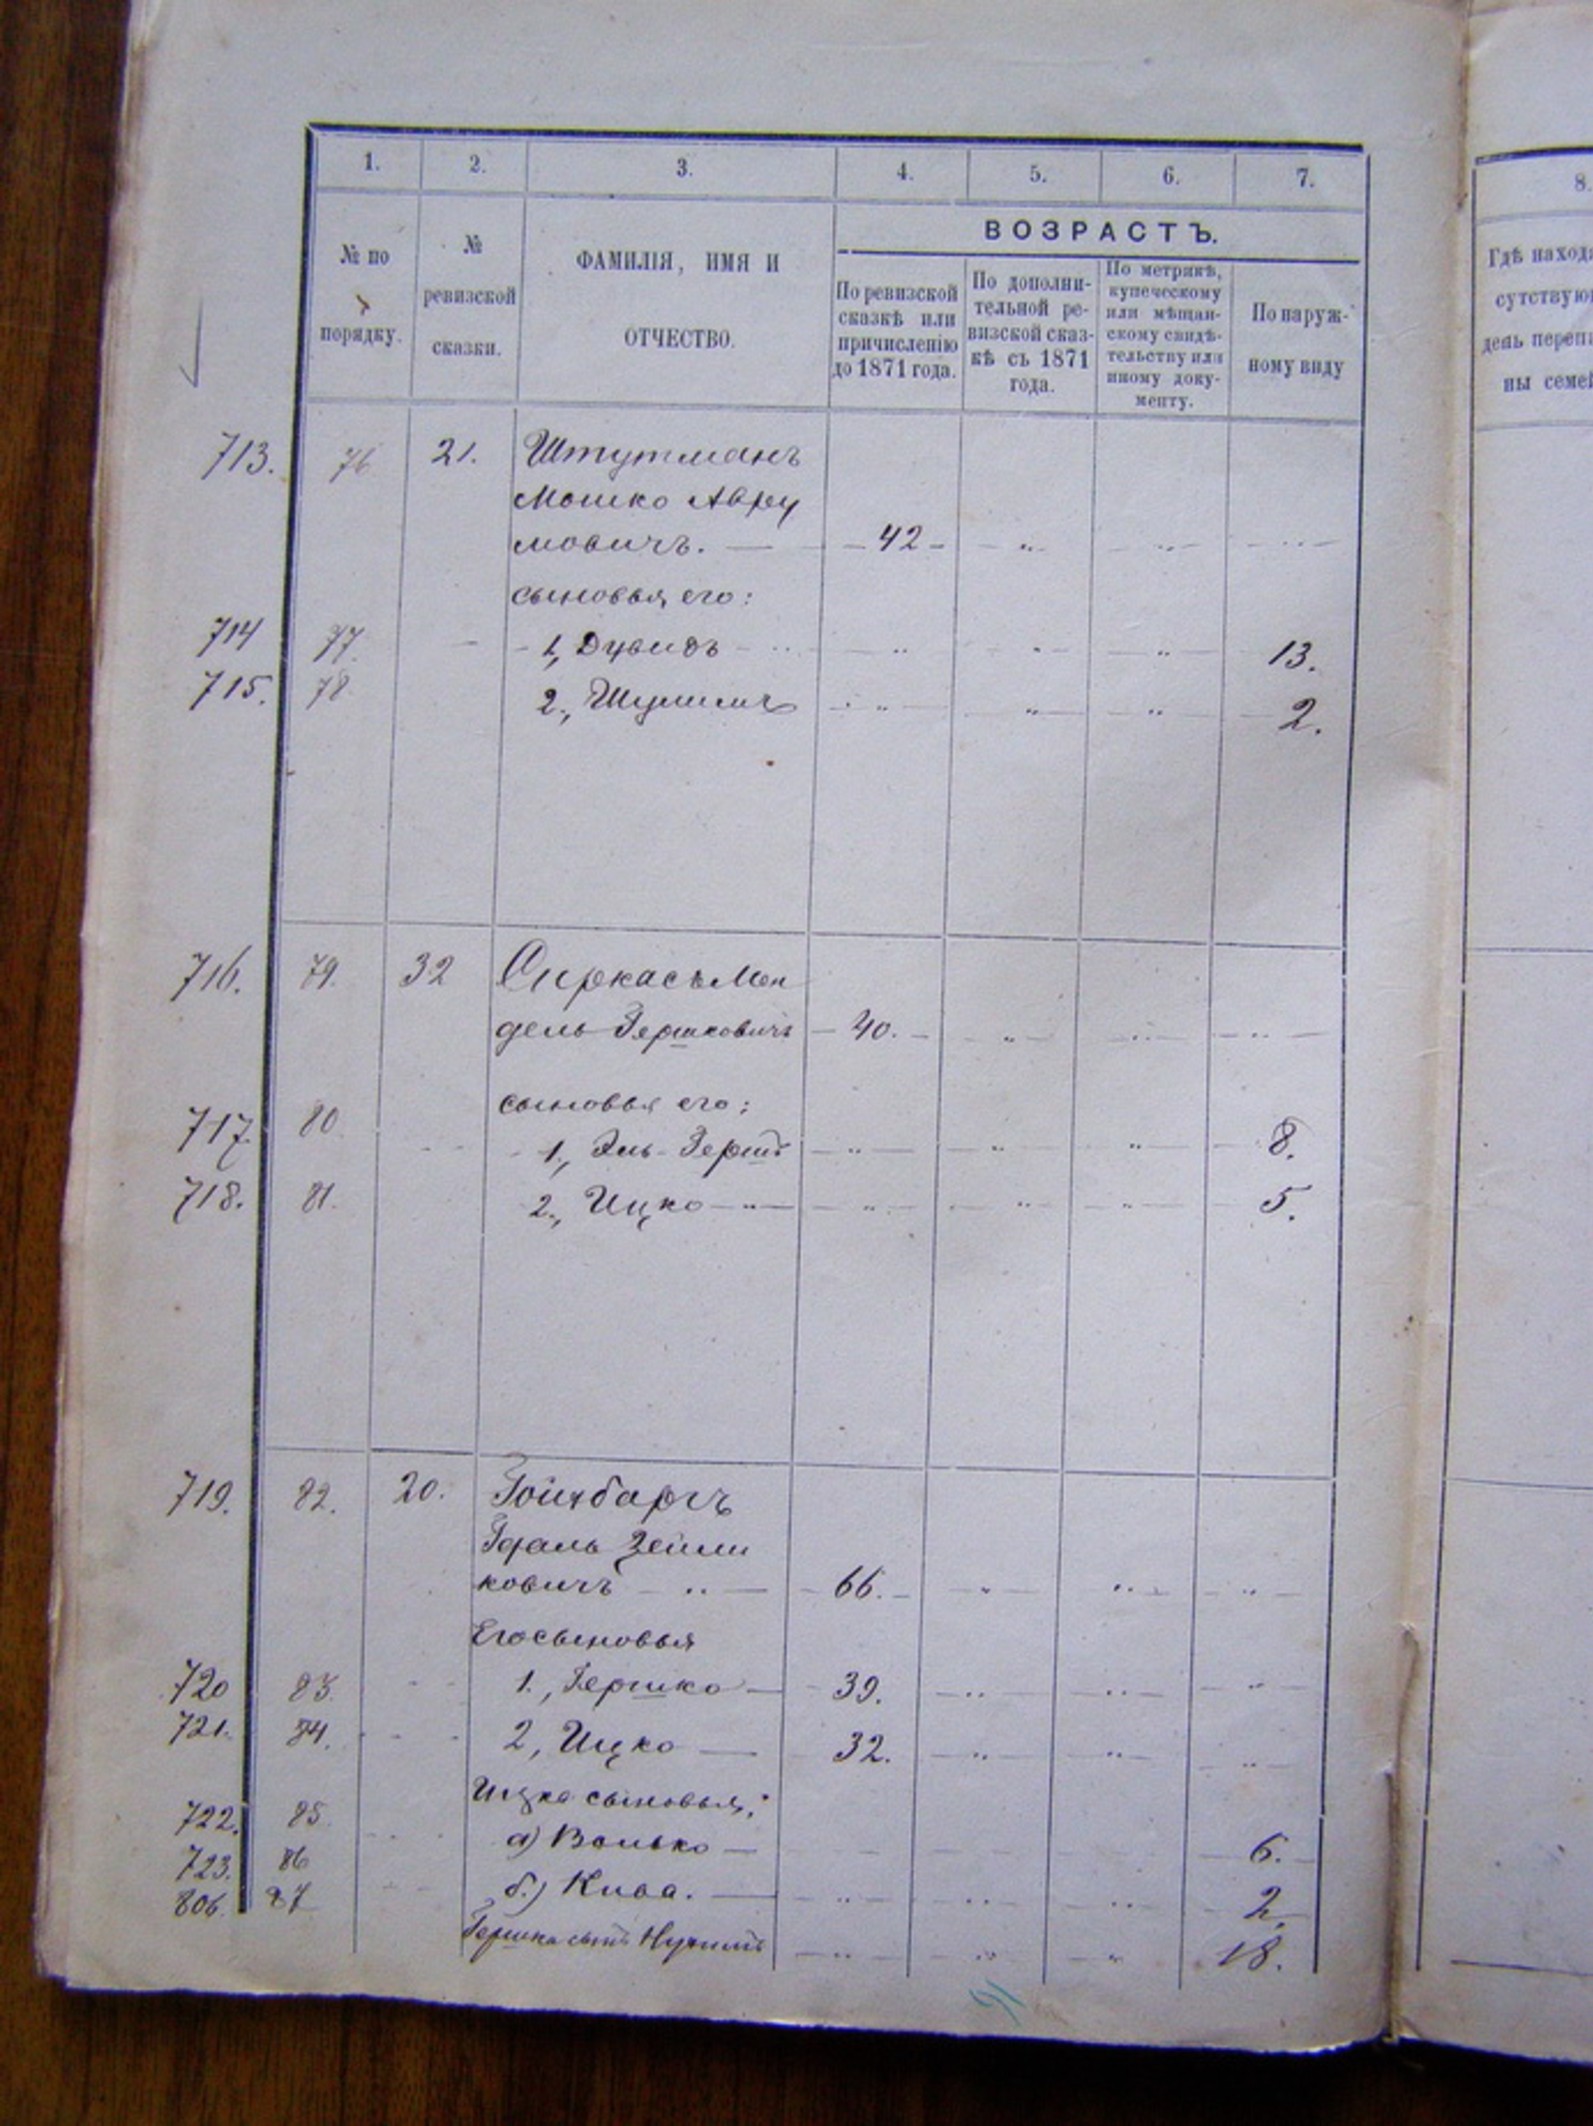 1. 2. 3. 4. 5. 6. 7.
8.
ВОЗРАСТЪ.
№ по
порядку.
№
ревизской
сказки.
ФАМИЛІЯ, ИМЯ И
ОТЧЕСТВО.
По ревизской
сказкѣ или
причисленію
до 1871 года.
По дополни-
тельной ре-
визской сказ-
кѣ съ 1871
года.
По метрикѣ,
купеческому
или мѣщан-
скому свидѣ-
тельству или
иному доку-
менту.
По наруж-
ному виду
Гдѣ наход
сутствую
день переп
ны семе
713. 76 21. Штутманъ
Мошко Авру
мовичъ. — 42 „ „ „
сыновья его:
714 77. 1, Дувидъ „ „ „ 13.
715. 78 2., „ „ „ 2.
716. 79. 32 Мен
дель Гершковичъ 40. „ „ „
сыновья его:
717. 80 1., Эль-Гершъ „ „ „ 8.
718. 81. 2., Ицко „ „ „ „ 5.
719. 82. 20. Гойхбаргъ
Гдаль Зейли
ковичъ „ 66. „ „ „
Его сыновья
720 83. 1., Гершко 39. „ „ „
721. 84. 2, Ицко 32. „ „ „
Ицка сыновья:
722. 85 а) Волько 6.
723. 86 б.) Кива. „ „ „ 2.
806. 87 Гершка сынъ Нухимъ „ „ „ 18.